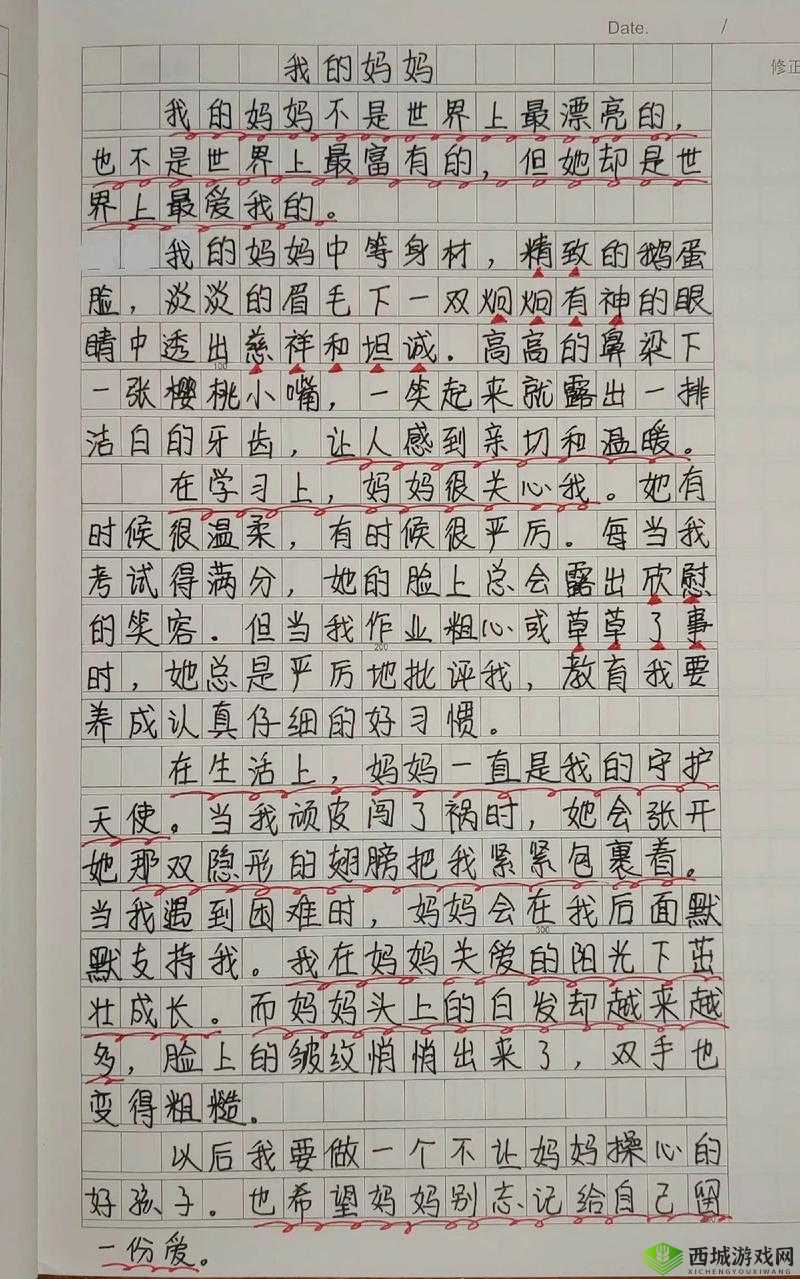 Date. /
修正
我的妈妈
我的妈妈不是世界上最漂亮的，
也不是世界上最富有的，但她却是世
界上最爱我的。
我的妈妈中等身材，精致的鹅蛋
脸，淡淡的眉毛下一双炯炯有神的眼
睛中透出慈祥和坦诚．高高的鼻梁下
100
一张樱桃小嘴，一笑起来就露出一排
洁白的牙齿，让人感到亲切和温暖。
在学习上，妈妈很关心我。她有
时候很温柔，有时候很严厉．每当我
考试得满分，她的脸上总会露出欣慰
的笑容．但当我作业粗心或草草了事
200
时，她总是严厉地批评我，教育我要
养成认真仔细的好习惯。
在生活上，妈妈一直是我的守护
天使。当我顽皮闯了祸时，她会张开
她那双隐形的翅膀把我紧紧包裹着。
当我遇到困难时，妈妈会在我后面默
300
默支持我。我在妈妈关爱的阳光下茁
壮成长。而妈妈头上的白发却越来越
多，脸上的皱纹悄悄出来了，双手也
变得粗糙。
以后我要做一个不让妈妈操心的
好孩子．也希望妈妈别忘记给自己留
一份爱。
西城游戏网
XICHENGYOUXIWANG